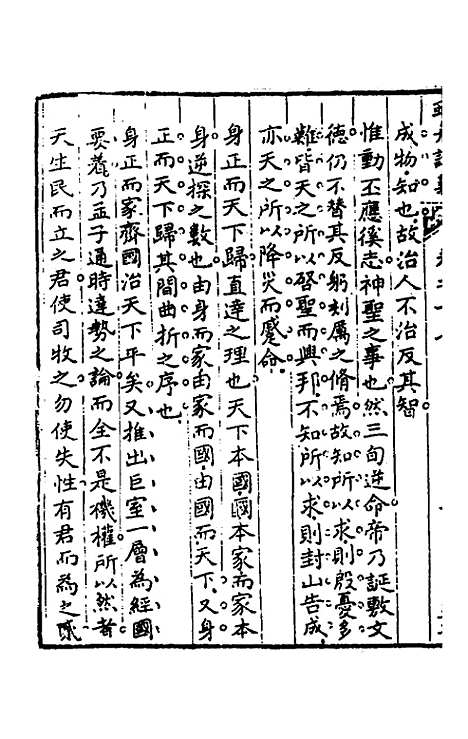 成物知也故治人不治反其智
惟動丕應徯志神聖之事也然三旬逆命帝乃誕敷文
德仍不替其反躬刻厲之脩焉故知所以求則殷憂多
難皆天之所以啓聖而興邦不知所以求則封山告成
亦天之所以降災而蹙命
身正而天下歸直達之理也天下本國國本家而家本
身逆探之數也由身而家由家而國由國而天下又身
正而天下歸其間曲折之序也
身正而家齊國治天下平矣又推出巨室一層為經國
要著乃孟子通時達勢之論而全不是機權所以然者
天生民而立之君使司牧之勿使失性有君而為之貳